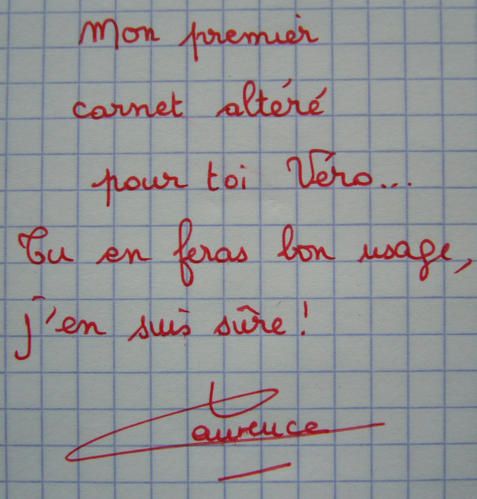 Mon premier
carnet altéré
pour toi Véro...
Tu en feras bon usage,
j'en suis sûre !
Laurence